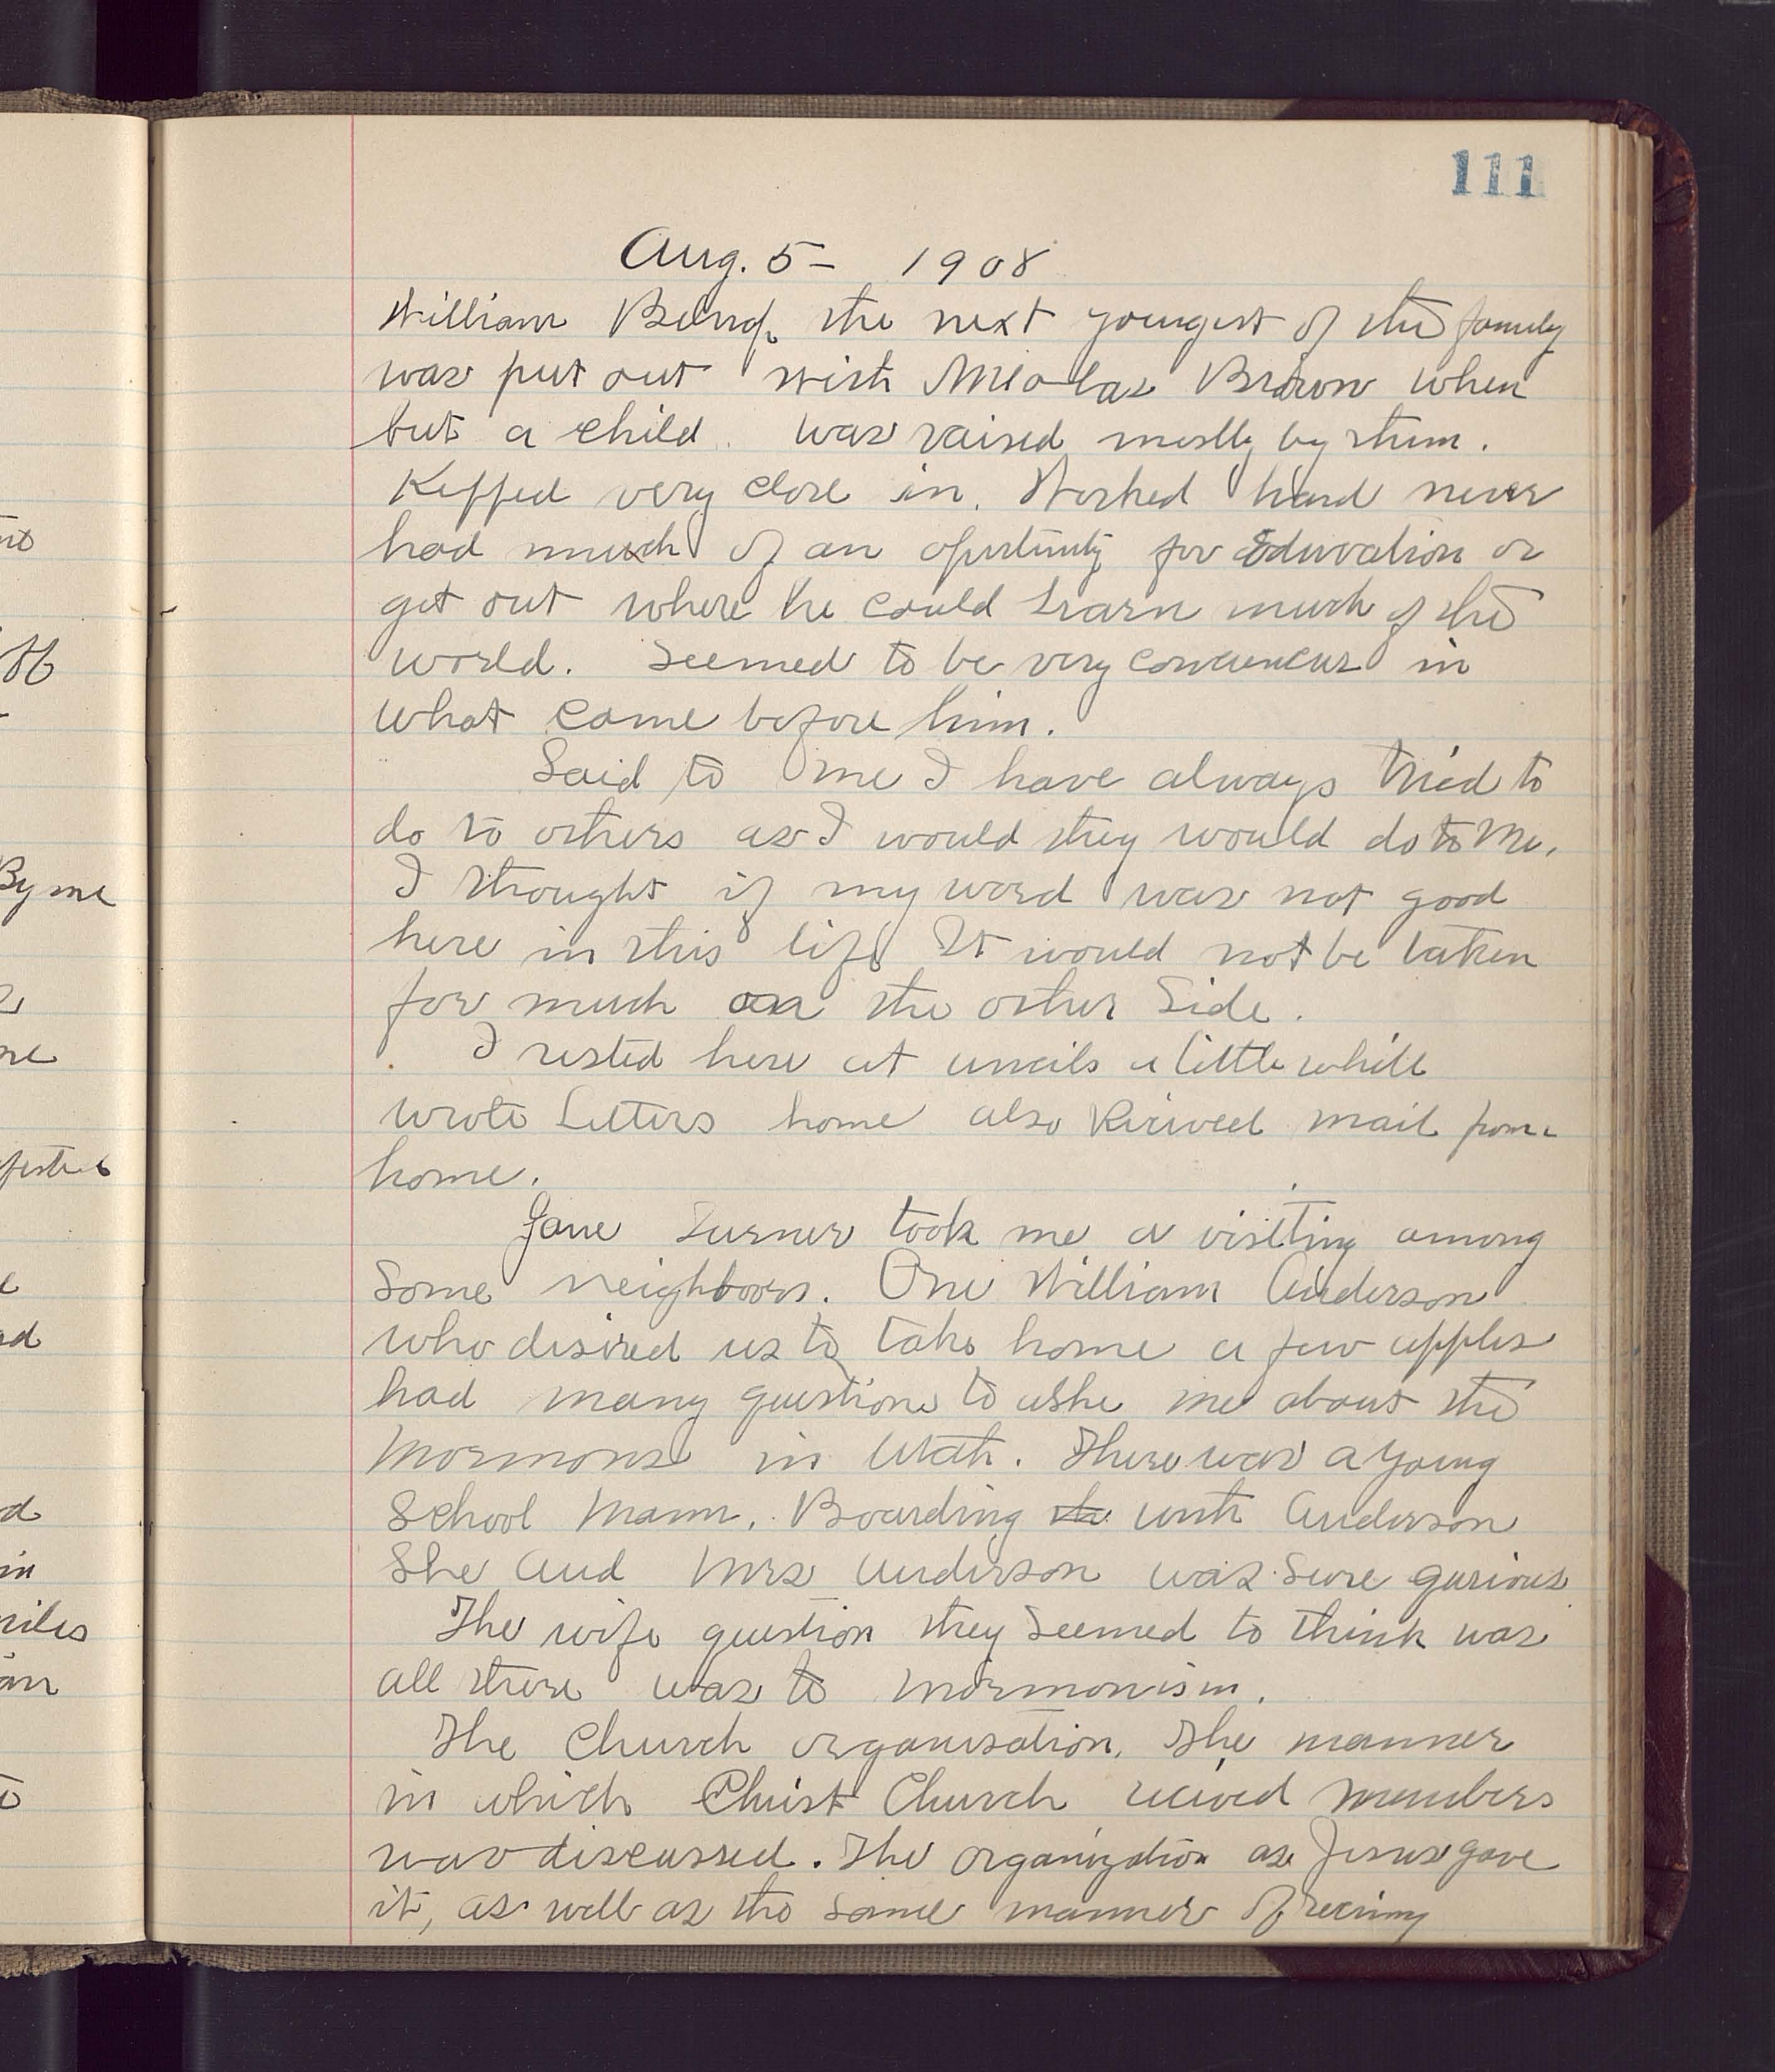 111
Aug. 5 - 1908
William the next youngest of the family
was put out with Brown when
but a child. was raised mostly by them.
Kepped very close in. Worked hard never
had much of an oportunity for Education or
get out where he could Learn much of the
world. Seemed to be very in
what come before him.
Said to me I have always tried to
do to others as I would they would do to Me.
I thought if my word was not good
here in this life It would not be taken
for much on the other Side.
I rested here at uncils a little while
wrote Letters home also Recived mail from
home.
Jane Turner took me a visiting among
Some neighbors. One William Anderson
who desired us to take home a few apples
had many questions to aske me about the
Mormons in Utah. There was a young
School Mam. Boarding with Anderson
She And Mrs Anderson was Sure qurious
The wife question they Seemed to think was
all there was to Mormonism.
The Church organisation. The manner
in which Christ Church recived Members
was discussed. The organization as Jesus gave
it, as well as the same manner of
By me
miles
in